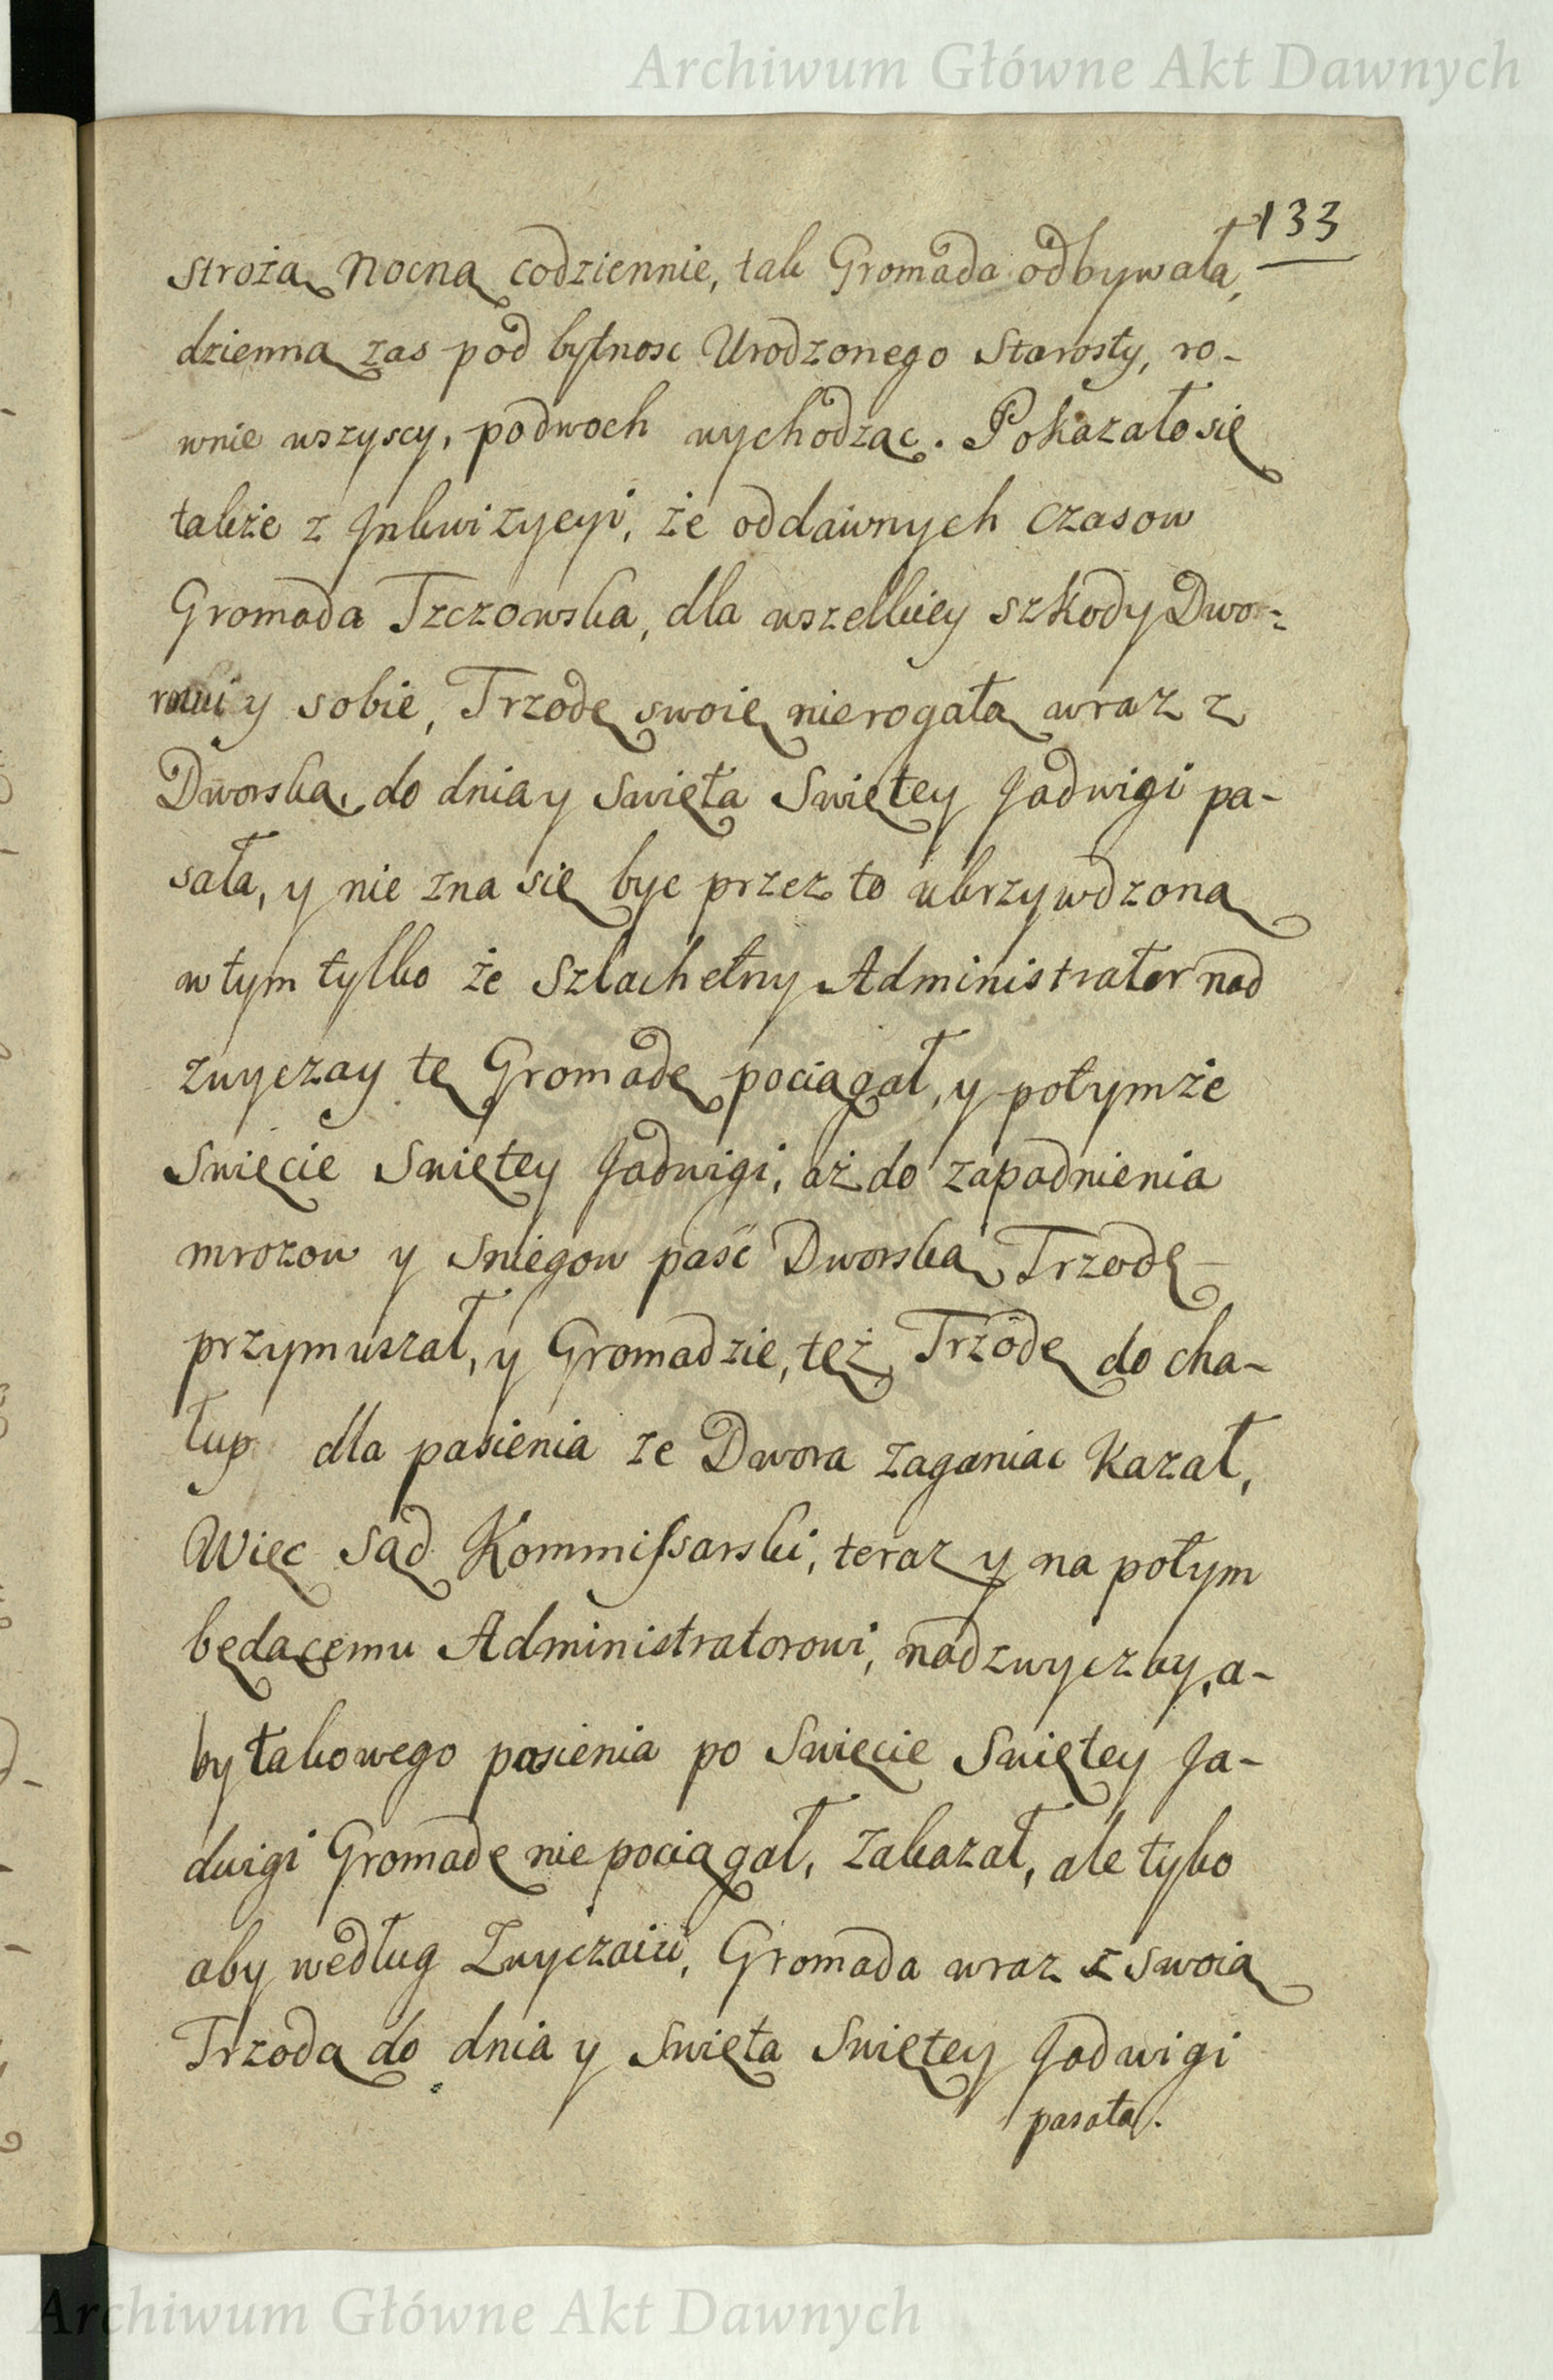 Archiwum Główne Akt Dawnych
133
strożą nocną codziennie, tak Gromada odbywała,
dzienną zas pod bytnosc Urodzonego Starosty, ro-
wnie wszyscy, podwoch wychodząc. Pokazało się
także z Inkwizycyi, że oddawnych czasow
Gromada Tzczowska, dla wszelkiey szkody Dwo-
rowi y sobie, Trzodę swoię nierogatą wraz z
Dworską, do dnia y Swięta Swiętey Jadwigi pa-
sała, y nie zna się byc przez to ukrzywdzoną
w tym tylko że Szlachetny Administrator nad
zwyczay tę Gromadę pociągał, y potymże
Swięcie Swiętey Jadwigi, aż do zapadnienia
mrozow y Sniegow paść Dworską Trzodę
przymuszał, y Gromadzie, też Trzodę do cha-
łup dla pasienia ze Dwora zaganiac kazał,
Więc Sąd Kommissarski, teraz y na potym
będącemu Administratorowi, nadzwyczay, a-
by takowego pasienia po Swięcie Swiętey Ja-
dwigi Gromadę nie pociągał, zakazał, ale tylko
aby według Zwyczaiu, Gromada wraz z swoią
Trzodą do dnia y Swięta Swiętey Jadwigi
pasała.
Archiwum Główne Akt Dawnych